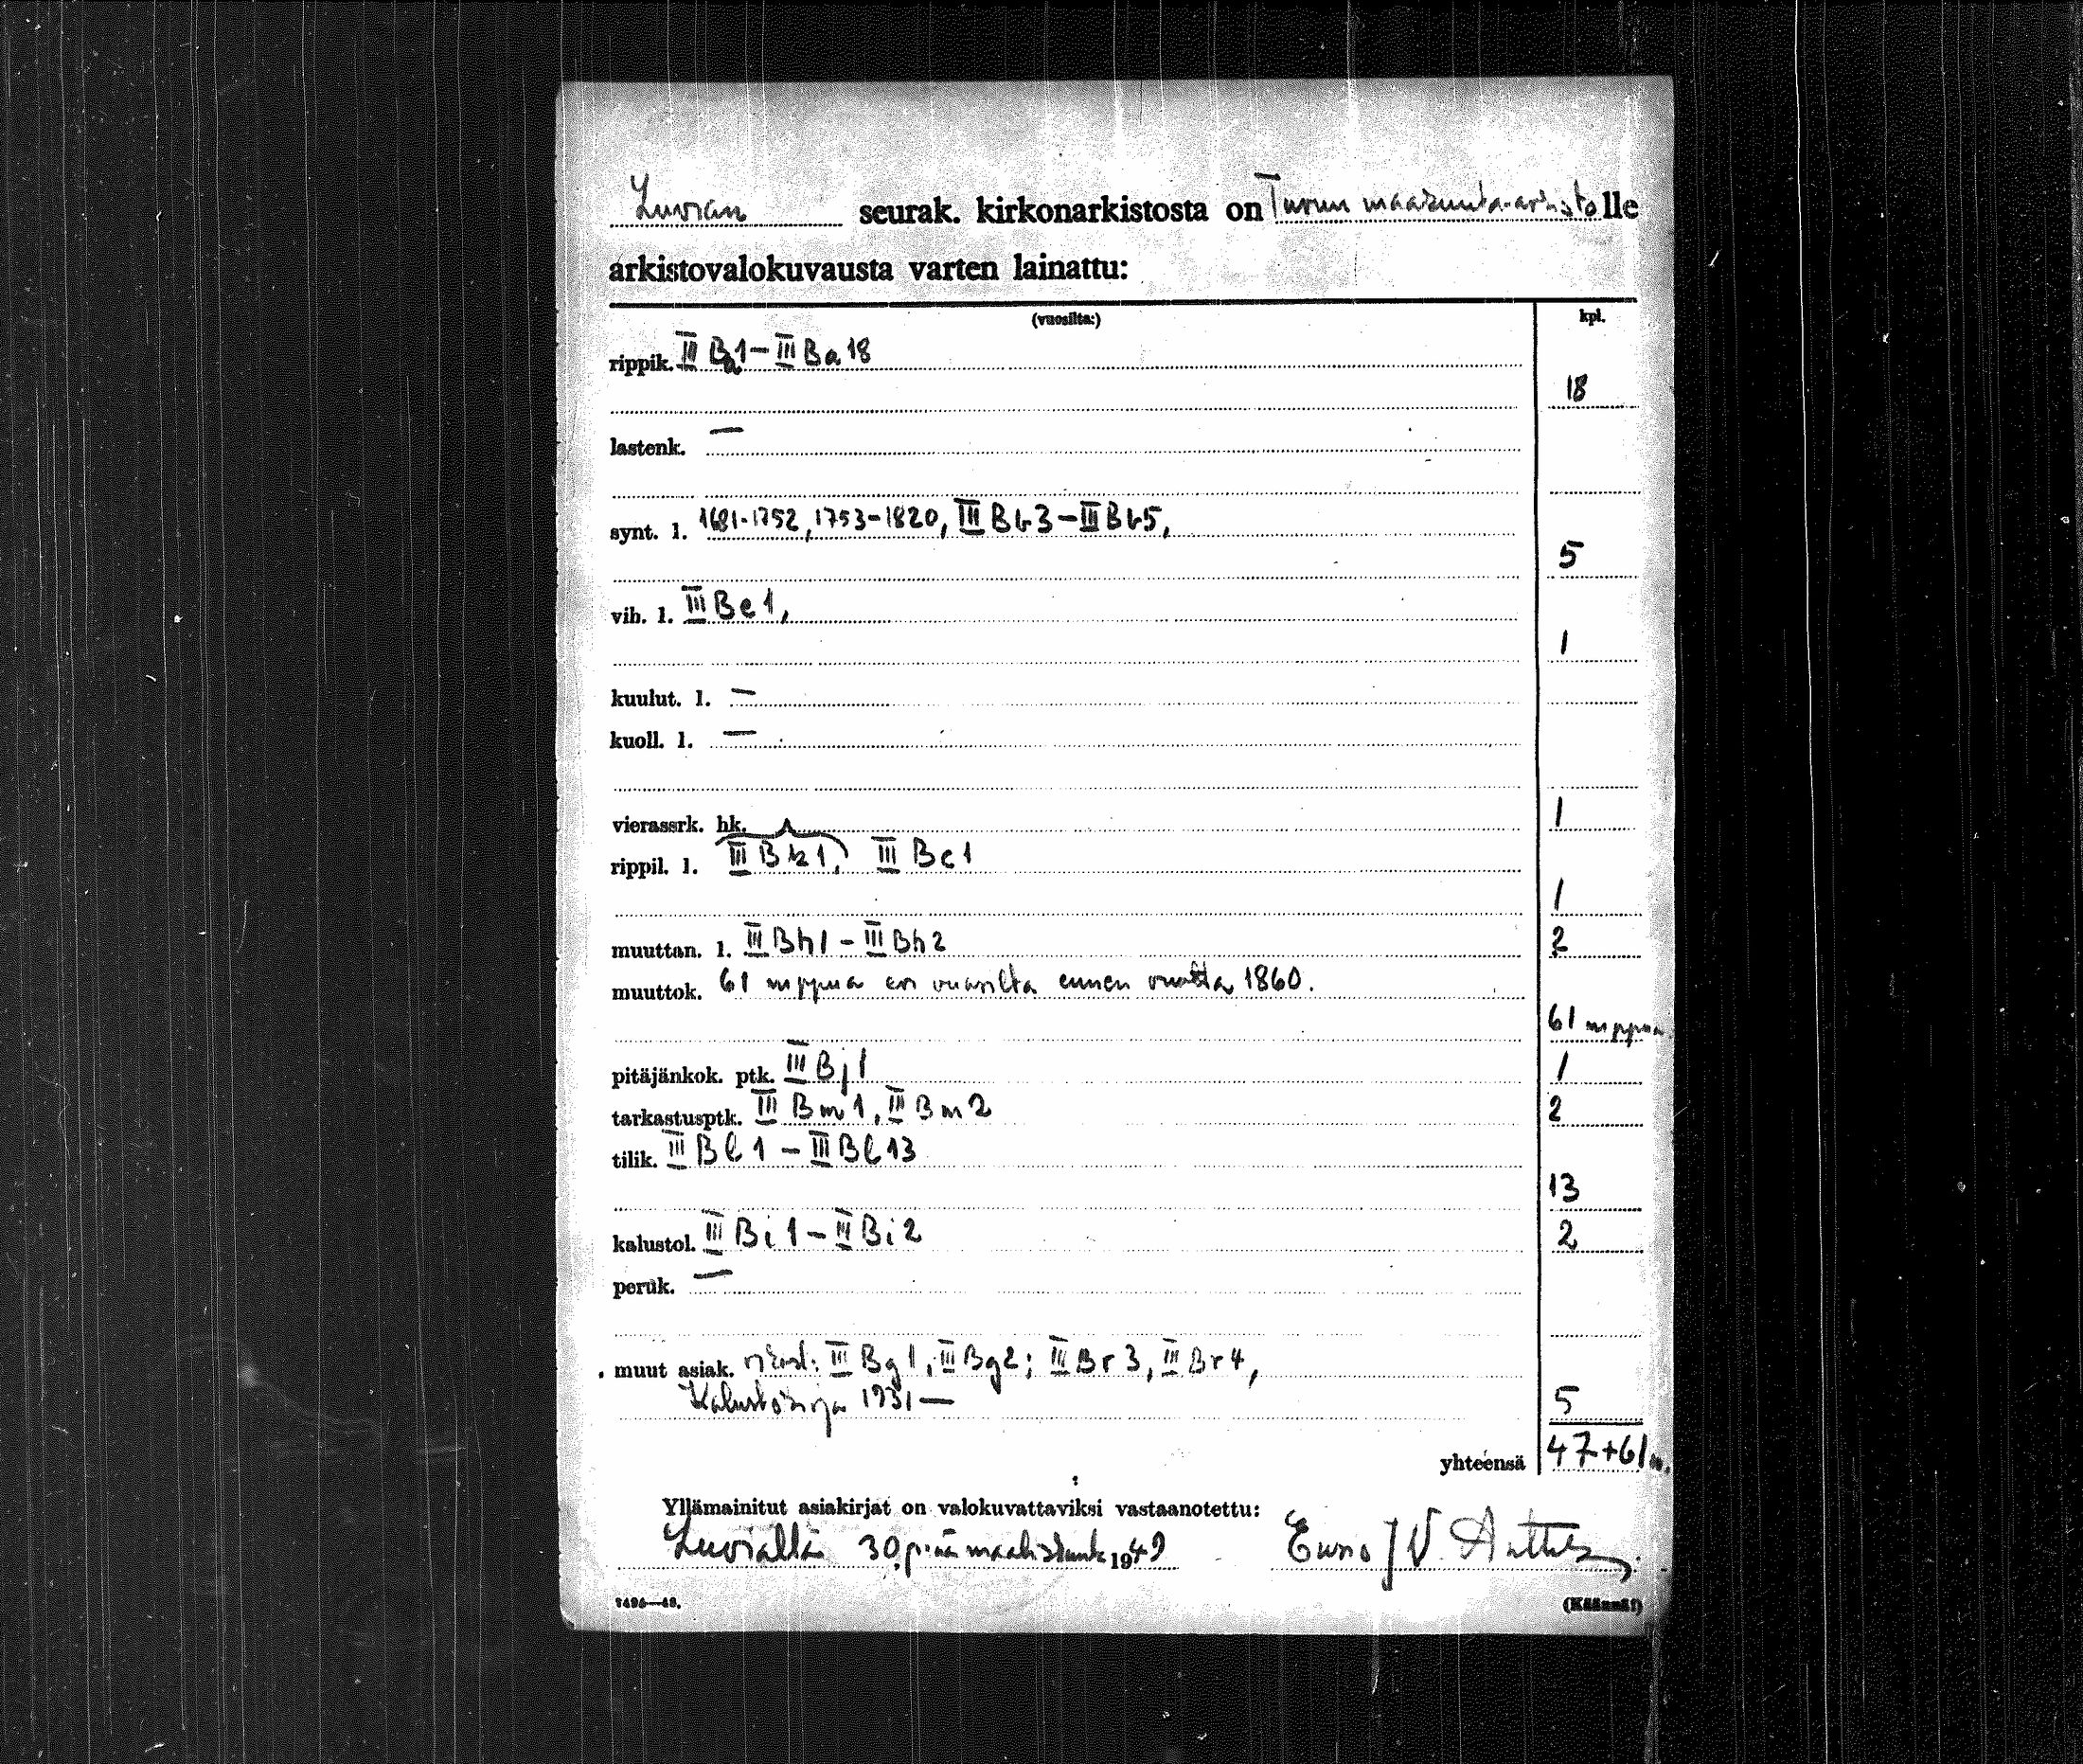 Luvian seurak. kirkonarkistosta on Turun maakunta-arkistolle
arkistovalokuvausta varten lainattu:
(vuosilta:) kpl.
rippik. III Ba1 – III Ba 18
18
lastenk. —
synt. l. 1681-1752, 1753-1820, III Bb3 – III Bb5,
5
vih. l. III Be 1,
1
kuulut. l. —
kuoll. l. —
vierassrk. hk. 1
rippil. l. III Bk1, III Bc1
1
muuttan. l. III Bh1 – III Bh2 2
muuttok. 61 nippua eri vuosilta ennen vuotta 1860.
61 nippua
pitäjänkok. ptk. III Bj1 1
tarkastusptk. III Bm1, III Bm2 2
tilik. III Bl 1 – III Bl 13
13
kalustol. III Bi 1 – III Bi 2 2
peruk. —
muut asiak. III Bg1, III Bg2; III Br 3, III Br 4,
Kalustokirja 1931 — 5
yhteensä 47+61 n.
Yllämainitut asiakirjat on valokuvattaviksi vastaanotettu:
Luvialla 30 p:nä maalisk. 1949 J V.
7496—48. (Käännä!)